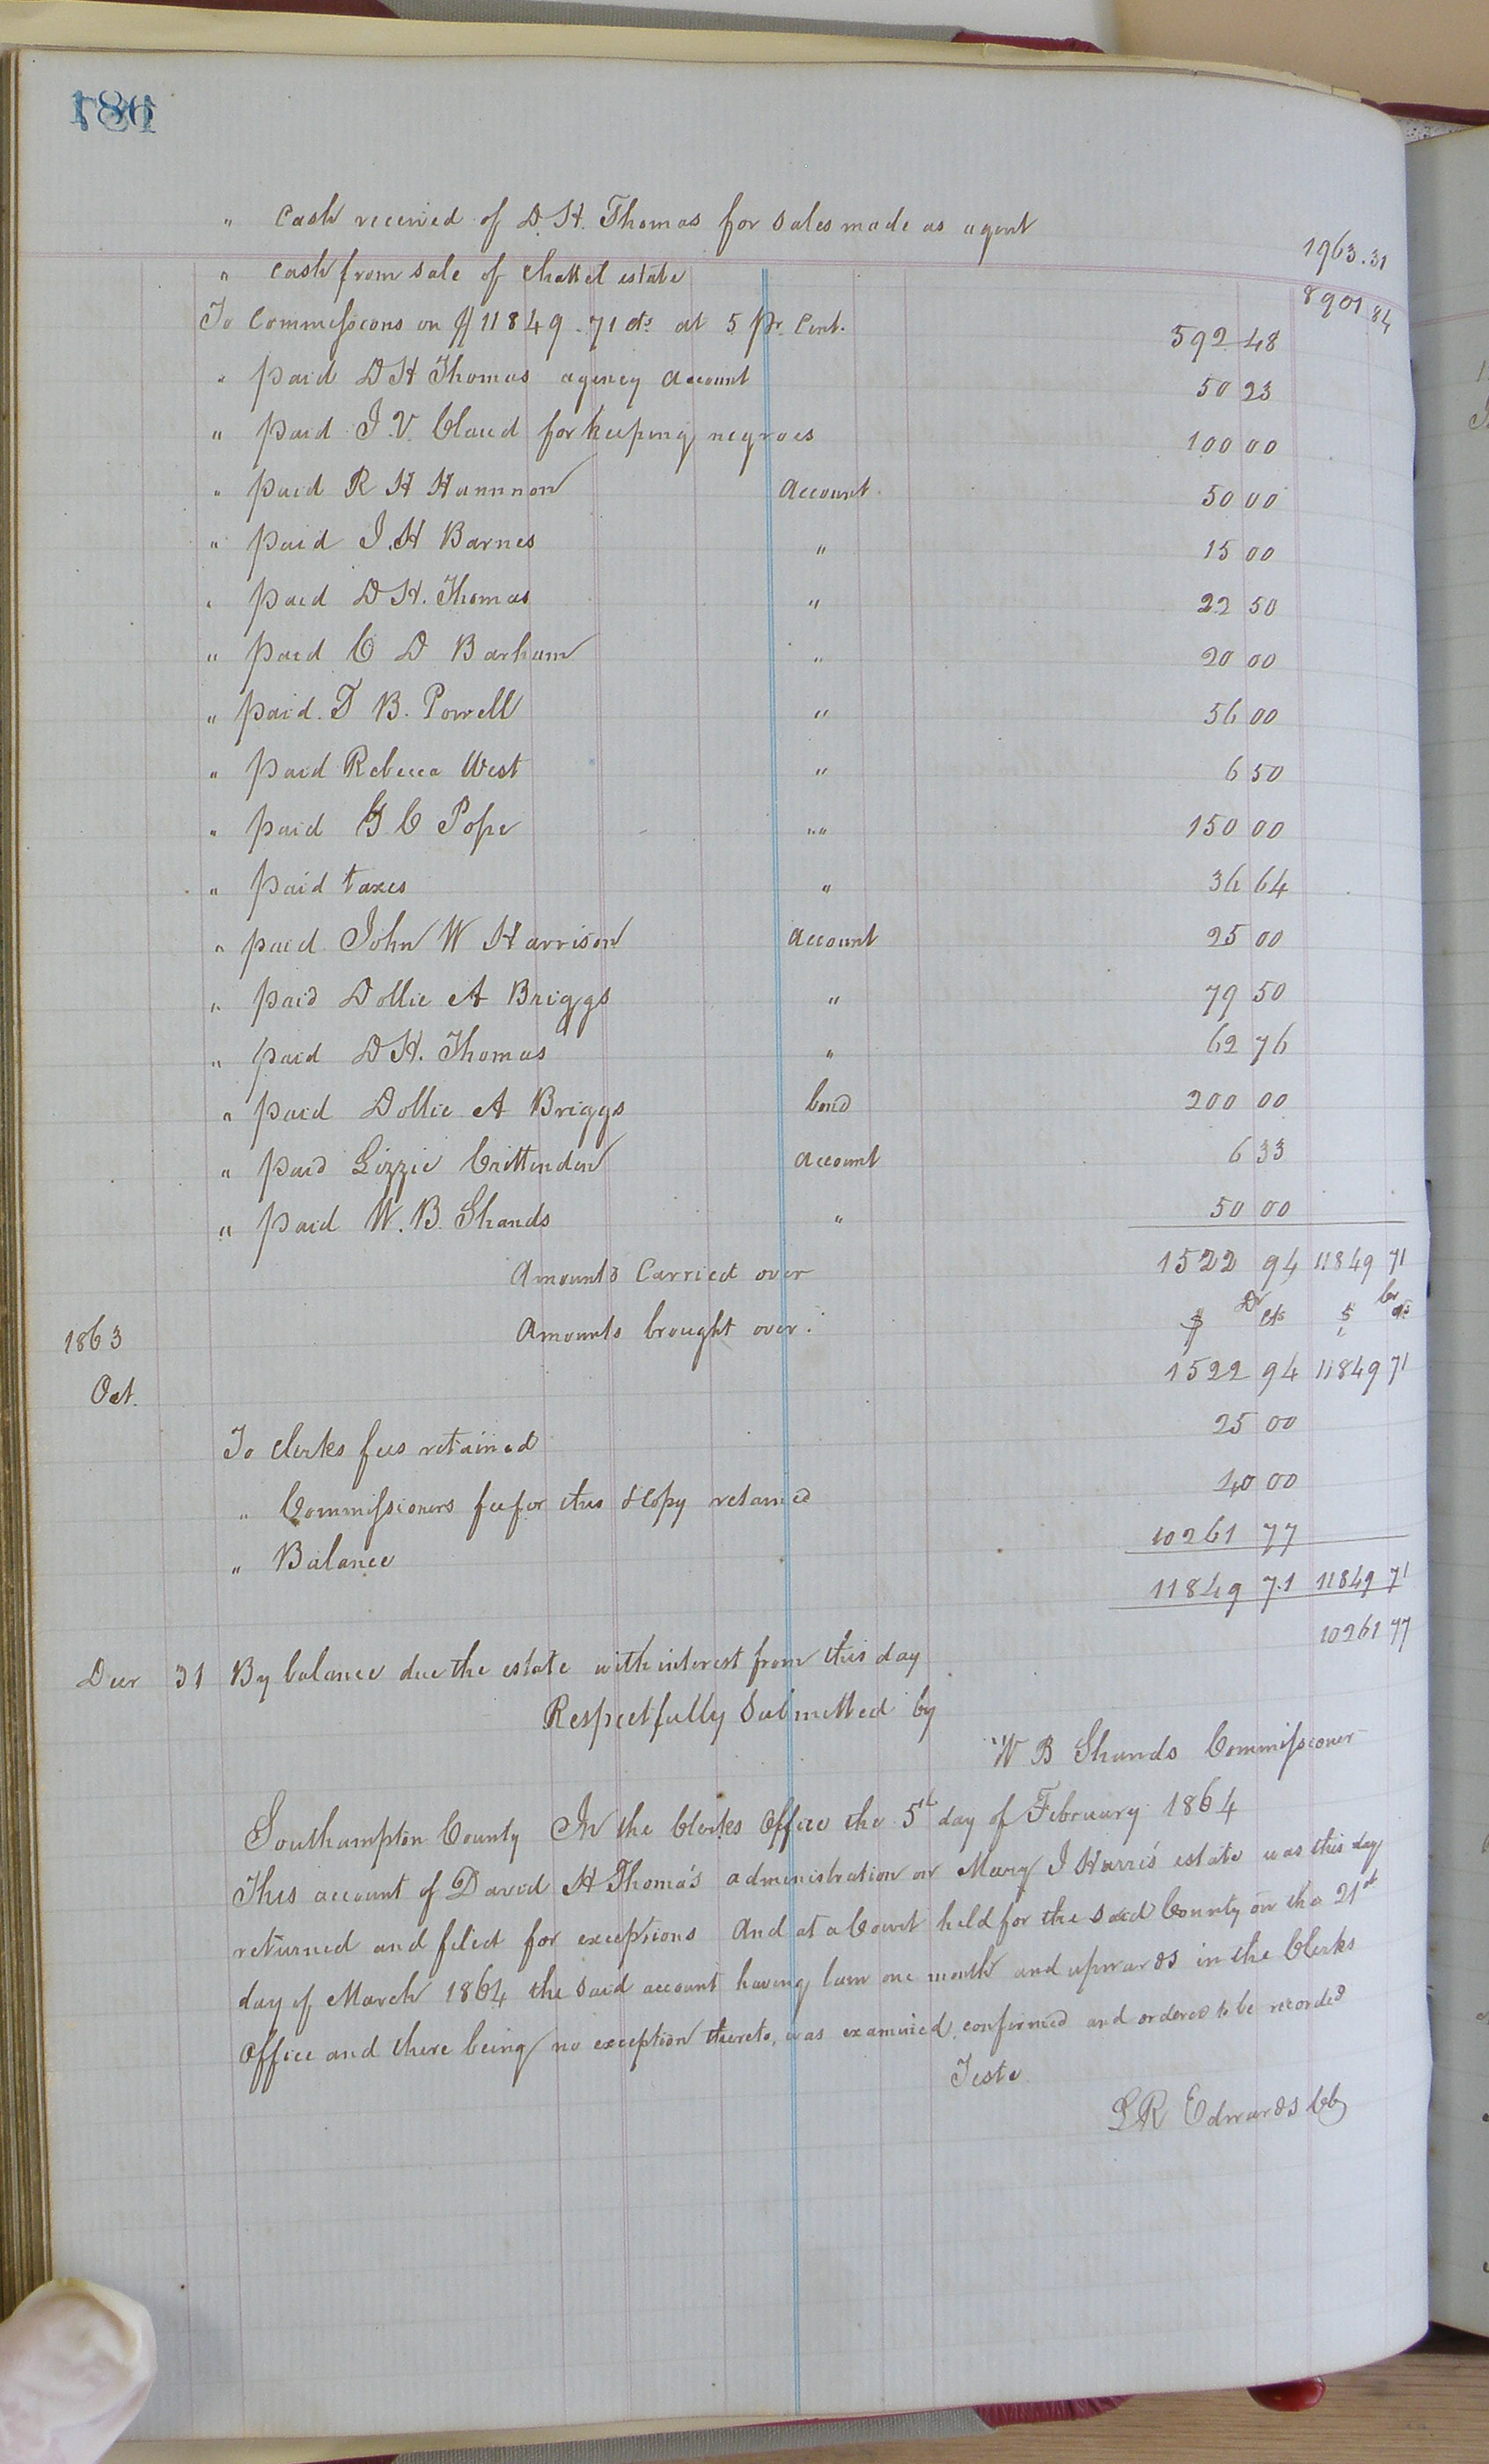 186
" Cash received of D. H. Thomas for sales made as agent 1963.31
" Cash from sale of Chattel estate 8901 84
To Commissions on $11849.71 cts at 5 pr Cent. 592 48
" paid D H Thomas agency account 50 23
" paid J. V. Claud for keeping negroes 100 00
" paid R H Hannnon Account 50 00
" paid J. H Barnes " 15 00
" paid D H. Thomas " 22 50
" paid C D Barham " 20 00
" paid T B. Powell " 56 00
" paid Rebecca West " 6 50
" paid G C Pope " " 150 00
" paid taxes " 36 64
" paid John W Harrison Account 25 00
" paid Dollie A Briggs " 79 50
" paid D H. Thomas " 62 76
" paid Dollie A Briggs bond 200 00
" paid Lizzie Crittenden Account 6 33
" paid W. B. Shands " 50 00
Amounts Carried over 1522 94 11849 71
Dr Cr
1863 Amounts brought over. $ cts $ cts
Oct. 1522 94 11849 71
To Clerks fees retained 25 00
" Commissioners fee for this & Copy retained 40 00
" Balance 10261 77
11849 71 11849 71
Decr 31 By balance due the estate with interest from this day 10261 77
Respectfully Submitted by
W B Shands Commissioner
Southampton County In the Clerks Office the 5th day of February 1864
This account of David H Thomas administration on Mary J Harris estate was this day
returned and filed for exceptions And at a Court held for the said County on the 21st
day of March 1864 the said account having lain one month and upwards in the Clerks
Office and there being no exception thereto, was examined, confirmed and ordered to be recorded
Teste
L R Edwards CC